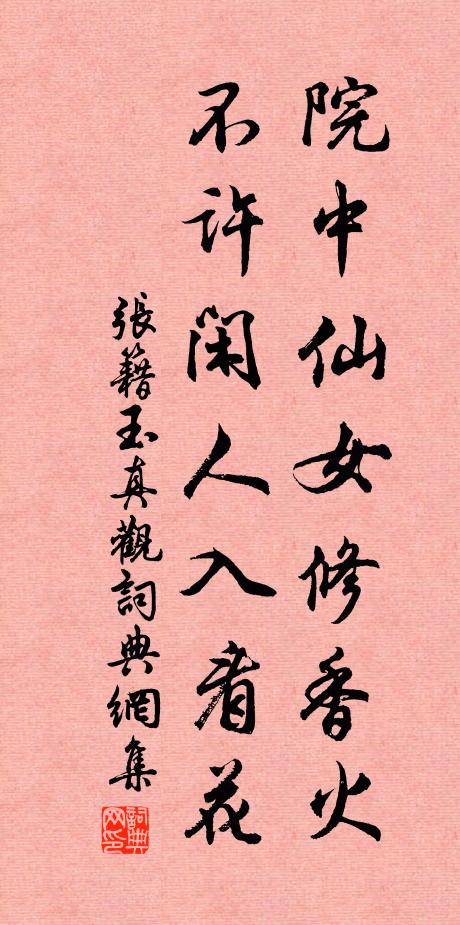 院中仙女修香火
不許閑人入看花
張籍玉真觀詞典網集
詞典网印